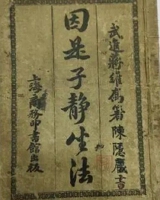 武進蔣維喬著 陳隱嚴書
因是子靜坐法
上海商務印書館出版